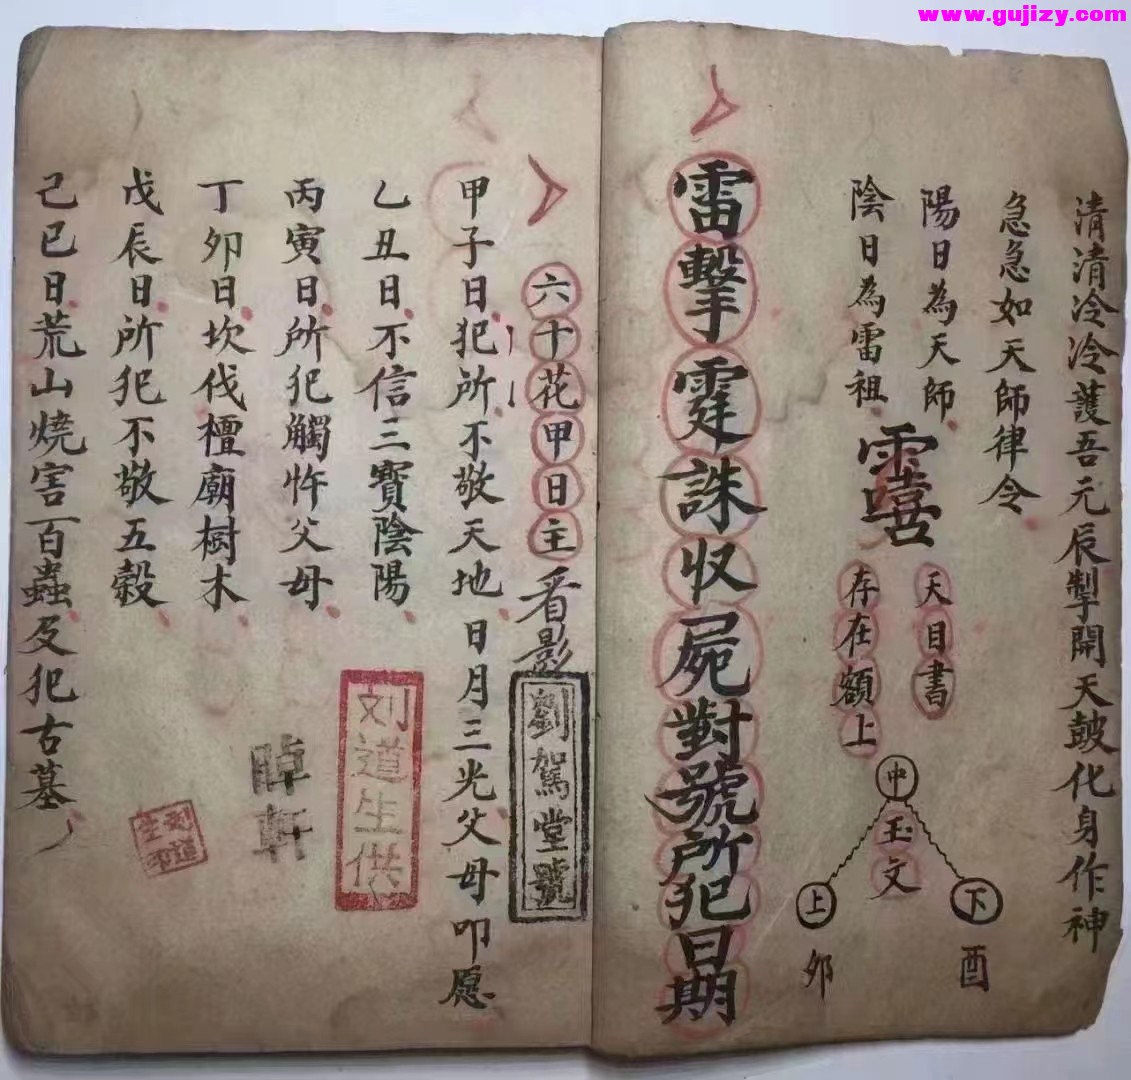 www.gujizy.com
清清冷冷護吾元辰掣開天鼓化身作神
急急如天師律令
陽日為天師
陰日為雷祖
天目書
存在額上
中
玉文
上
下
卯
酉
雷擊霆誅収屍對號所犯日期
六十花甲日主看影
劉駕堂號
甲子日犯所不敬天地日月三光父母叩愿
乙丑日不信三寶陰陽
刘道生供
丙寅日所犯觸忤父母
丁卯日坎伐檀廟樹木
戊辰日所犯不敬五穀
己巳日荒山燒害百蟲及犯古墓